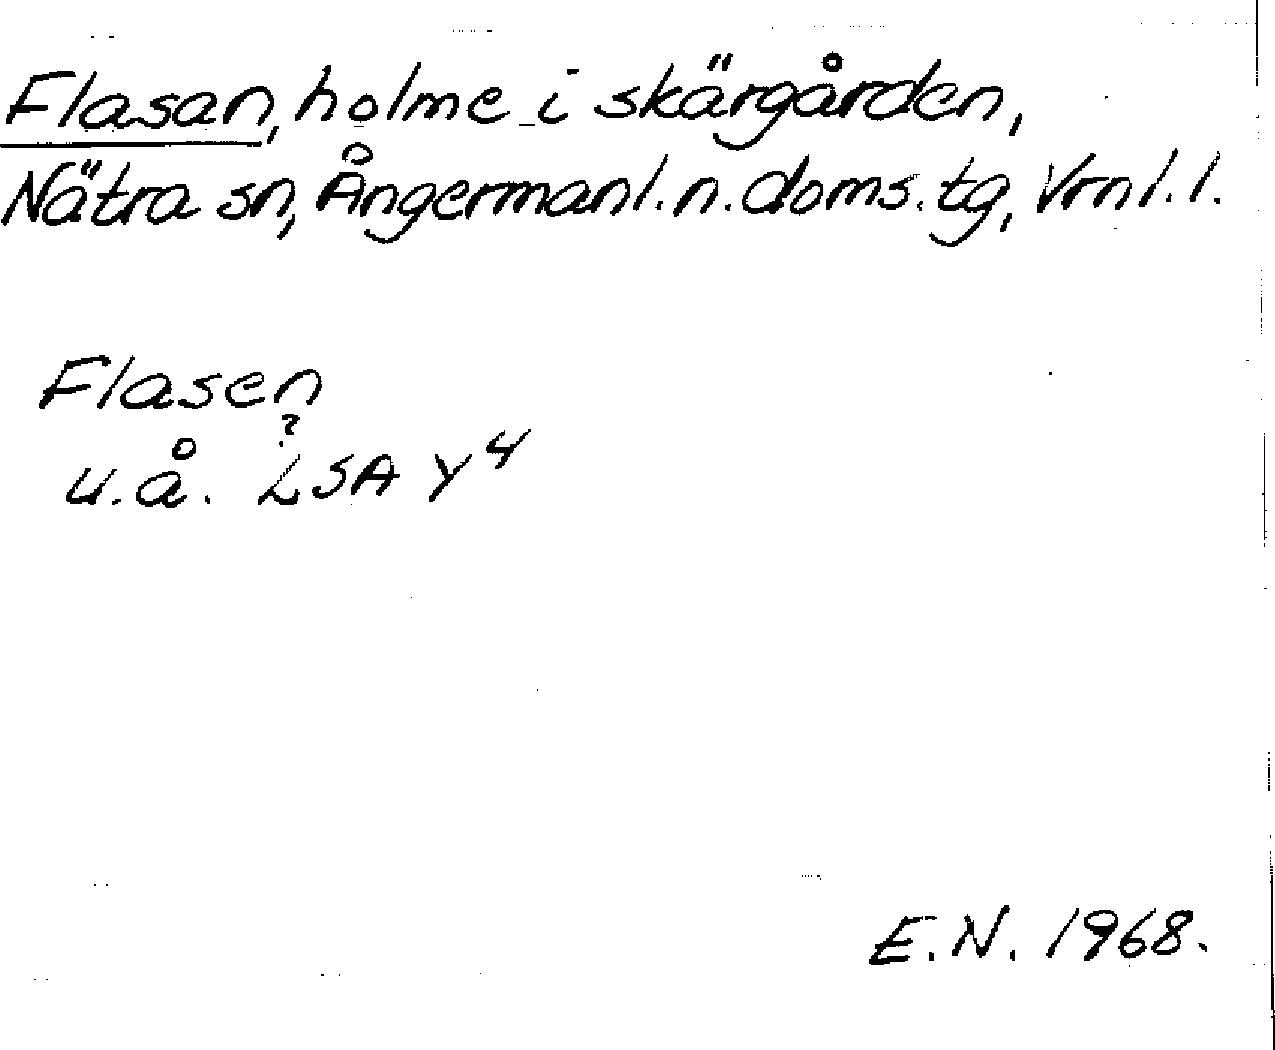 Flasan, holme i skärgården,
Nätra sn, Ångermanl. n. doms. tg, Vrnl. l.
Flasen
?
u.å. LSA Y4
E.N. 1968.